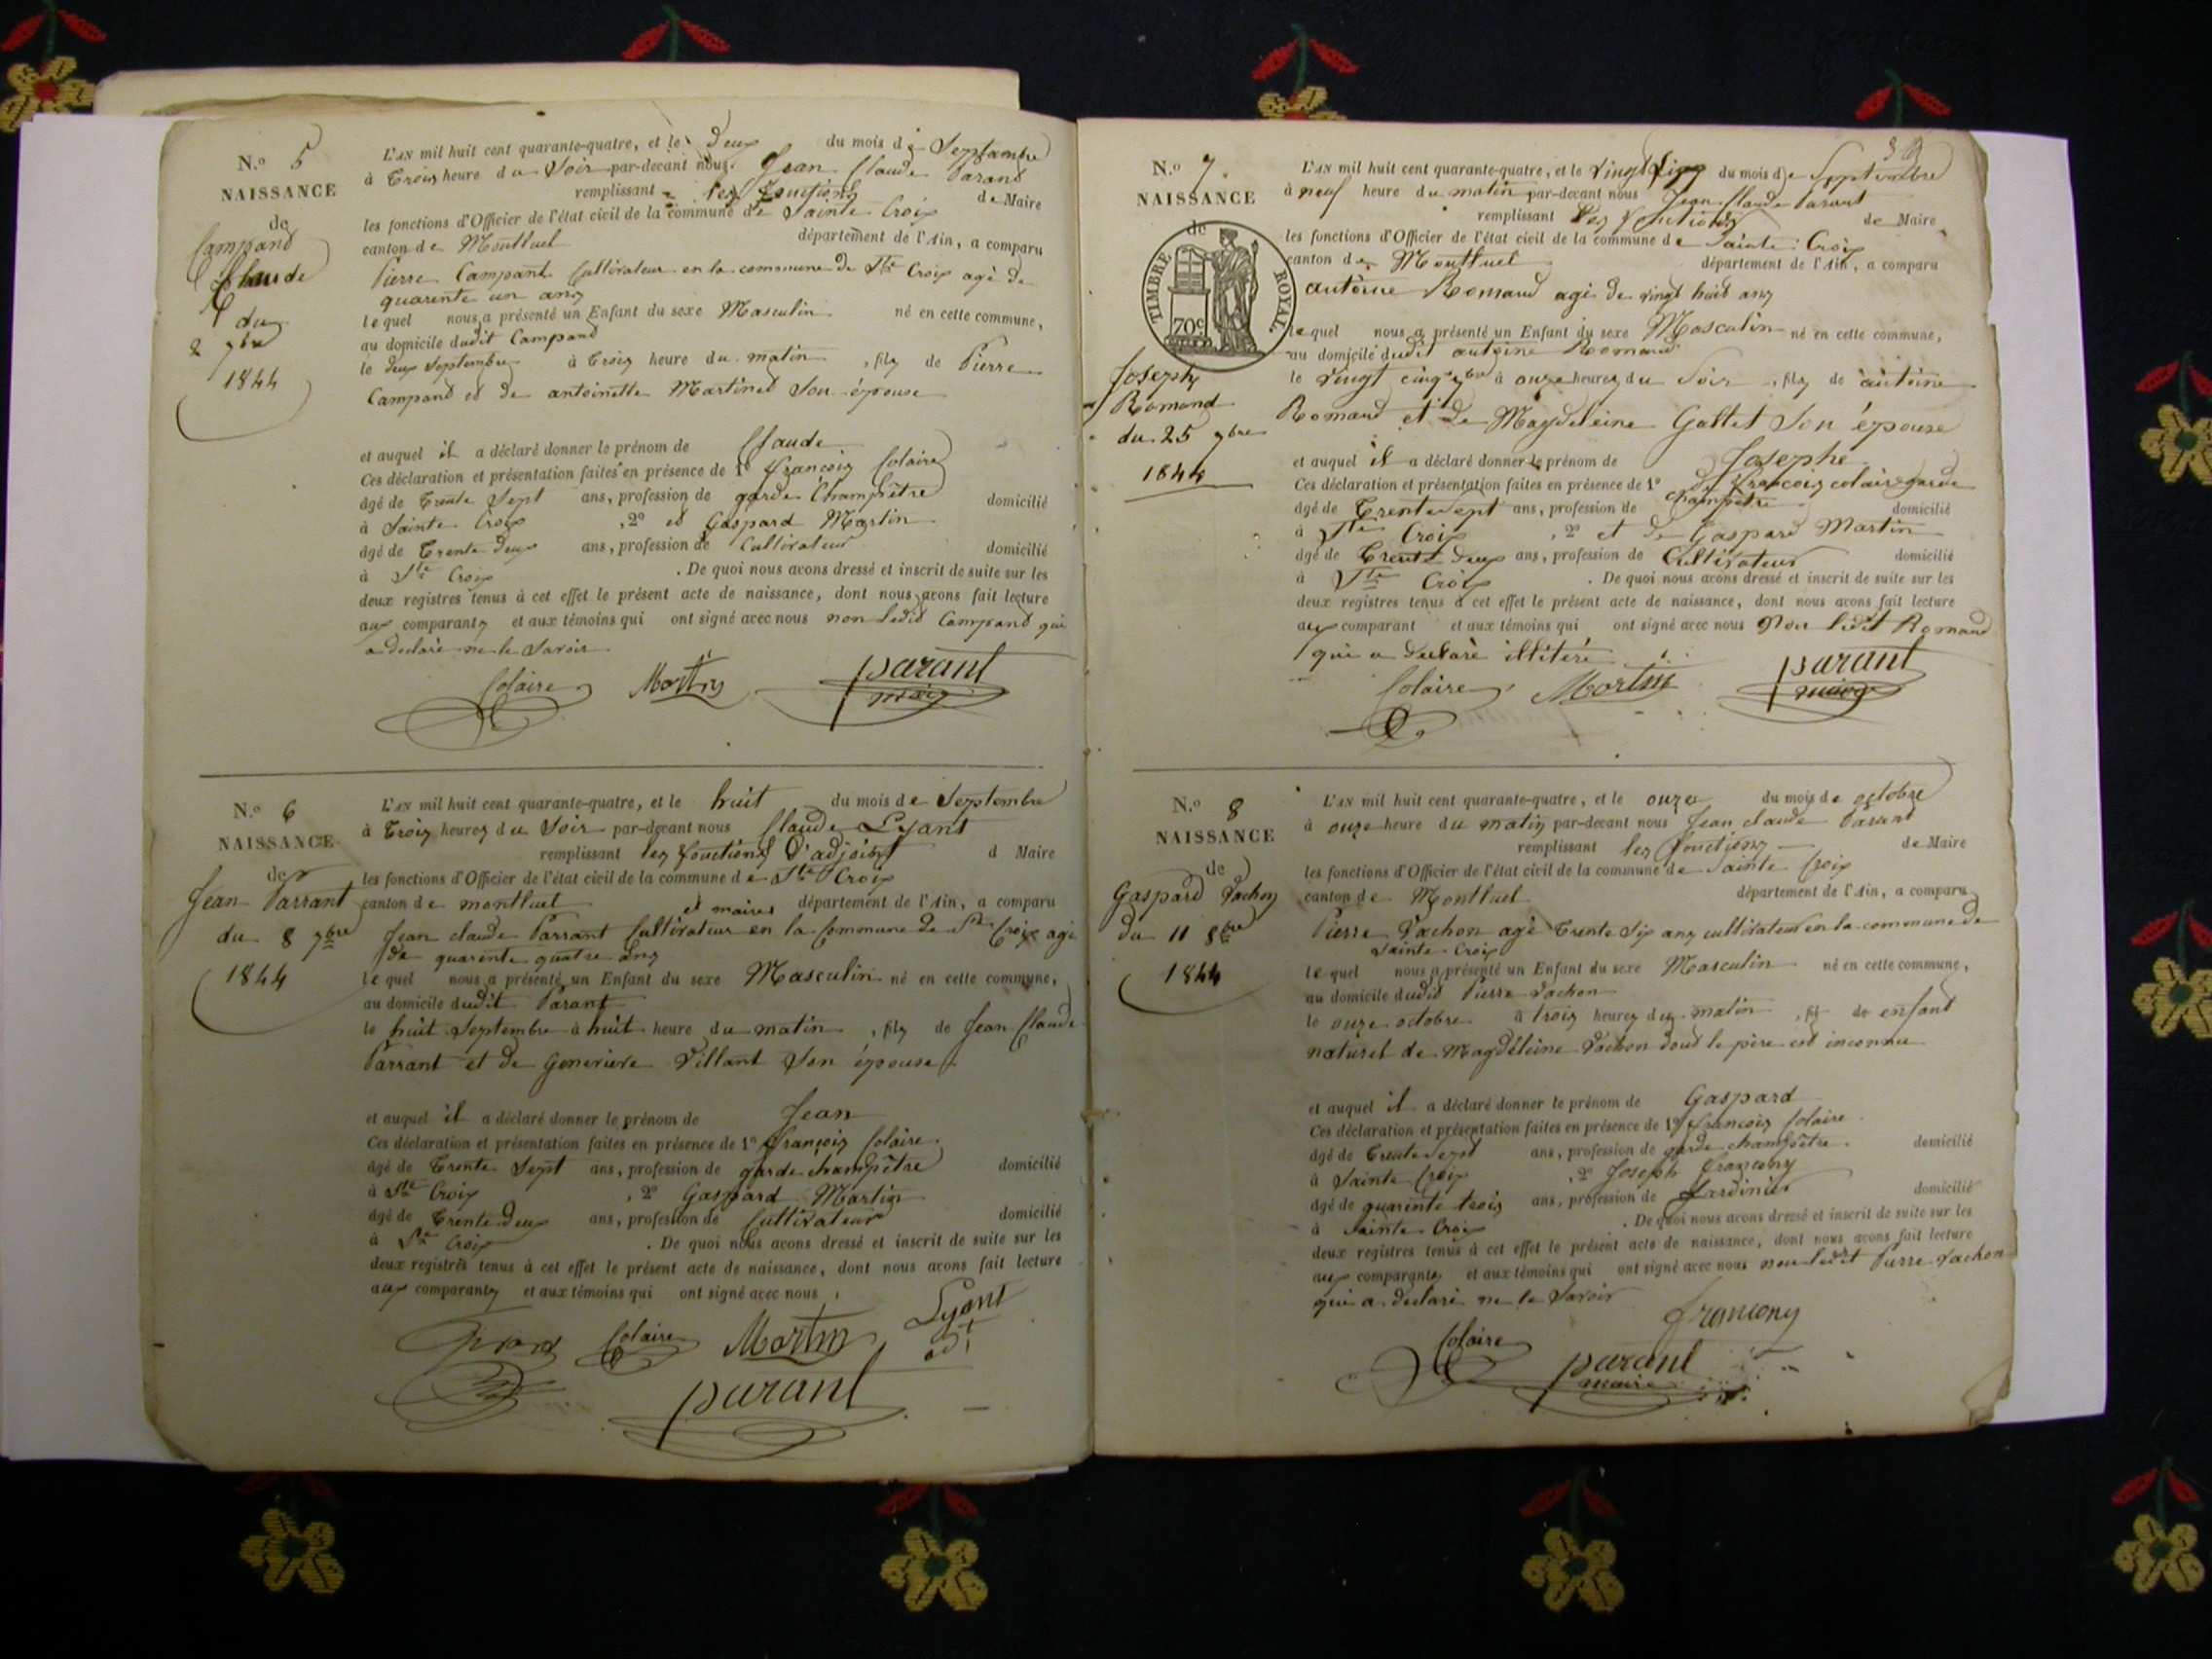 N.º 5
NAISSANCE
de
Campand
Claude
du
2 7bre
1844
L'AN mil huit cent quarante-quatre, et le deux du mois de Septembre
à trois heure du Soir par-devant nous Jean Claude Parant
remplissant les fonctions de Maire
les fonctions d'Officier de l'état civil de la commune de Sainte Croix
canton de Montluel département de l'Ain, a comparu
Pierre Campant Cultivateur en la commune de Ste Croix agé de
quarente un ans
lequel nous a présenté un Enfant du sexe Masculin né en cette commune,
au domicile dudit Campand
le deux Septembre à trois heure du matin, fils de Pierre
Campand et de antoinette Martinet Son épouse
et auquel il a déclaré donner le prénom de Claude
Ces déclaration et présentation faites en présence de 1º françois Colaire
âgé de trente Sept ans, profession de garde Champêtre domicilié
à Sainte Croix, 2º et Gaspard Martin
âgé de trente deux ans, profession de Cultivateur domicilié
à Ste Croix. De quoi nous avons dressé et inscrit de suite sur les
deux registres tenus à cet effet le présent acte de naissance, dont nous avons fait lecture
aux comparants et aux témoins qui ont signé avec nous non ledit Campand qui
a declaré ne le Savoir
Colaire Martin parant
maire
N.º 6
NAISSANCE
de
Jean Parrant
du 8 7bre
1844
L'AN mil huit cent quarante-quatre, et le huit du mois de Septembre
à trois heures du Soir par-devant nous Claude Lyant
remplissant les fonctions d'adjoint d Maire
les fonctions d'Officier de l'état civil de la commune de Ste Croix
canton de montluel et maires département de l'Ain, a comparu
Jean claude Parrant Cultivateur en la Commune de Ste Croix agé
de quarente quatre ans
lequel nous a présenté un Enfant du sexe Masculin né en cette commune,
au domicile dudit Parant
le huit Septembre à huit heure du matin, fils de Jean Claude
Parrant et de Genevieve Villant Son épouse
et auquel il a déclaré donner le prénom de Jean
Ces déclaration et présentation faites en présence de 1º françois Colaire
âgé de trente Sept ans, profession de garde champêtre domicilié
à Ste Croix, 2º Gaspard Martin
âgé de trente deux ans, profession de Cultivateur domicilié
à Ste Croix. De quoi nous avons dressé et inscrit de suite sur les
deux registres tenus à cet effet le présent acte de naissance, dont nous avons fait lecture
aux comparants et aux témoins qui ont signé avec nous
Colaire Martin Lyant
adt
parant
N.º 7
NAISSANCE
de
TIMBRE ROYAL.
70c
Joseph
Romand
du 25 7bre
1844
L'AN mil huit cent quarante-quatre, et le vingt six du mois de Septembre
à neuf heure du matin par-devant nous Jean Claude Parant
remplissant les fonctions de Maire
les fonctions d'Officier de l'état civil de la commune de Sainte Croix
canton de Montluel département de l'Ain, a comparu
antoine Romand agé de vingt huit ans
lequel nous a présenté un Enfant du sexe Masculin né en cette commune,
au domicile dudit antoine Romand
le vingt cinq 7bre à onze heures du Soir, fils de antoine
Romand et de Magdeleine Gallet Son épouse
et auquel il a déclaré donner le prénom de Josephe
Ces déclaration et présentation faites en présence de 1º de françois colaire garde
âgé de trente sept ans, profession de champêtre domicilié
à Ste Croix, 2º et de Gaspard Martin
âgé de trente deux ans, profession de Cultivateur domicilié
à Ste Croix. De quoi nous avons dressé et inscrit de suite sur les
deux registres tenus à cet effet le présent acte de naissance, dont nous avons fait lecture
aux comparant et aux témoins qui ont signé avec nous non ledit Romand
qui a declaré illitéré
Colaire Martin parant
maire
N.º 8
NAISSANCE
de
Gaspard Vachon
du 11 8bre
1844
L'AN mil huit cent quarante-quatre, et le onze du mois de octobre
à onze heure du matin par-devant nous Jean claude Parant
remplissant les fonctions de Maire
les fonctions d'Officier de l'état civil de la commune de Sainte Croix
canton de Montluel département de l'Ain, a comparu
Pierre Vachon agé trente Six ans cultivateur en la commune de
Sainte Croix
lequel nous a présenté un Enfant du sexe Masculin né en cette commune,
au domicile dudit Pierre Vachon
le onze octobre à trois heures du matin, fils de enfant
naturel de Magdéleine Vachon dont le père est inconnu
et auquel il a déclaré donner le prénom de Gaspard
Ces déclaration et présentation faites en présence de 1º francois Colaire
âgé de trente sept ans, profession de garde champêtre domicilié
à Sainte Croix, 2º Joseph francony
âgé de quarente trois ans, profession de Jardinier domicilié
à Sainte Croix. De quoi nous avons dressé et inscrit de suite sur les
deux registres tenus à cet effet le présent acte de naissance, dont nous avons fait lecture
aux comparants et aux témoins qui ont signé avec nous non ledit Pierre Vachon
qui a declaré ne le Savoir
francony
Colaire parant
maire